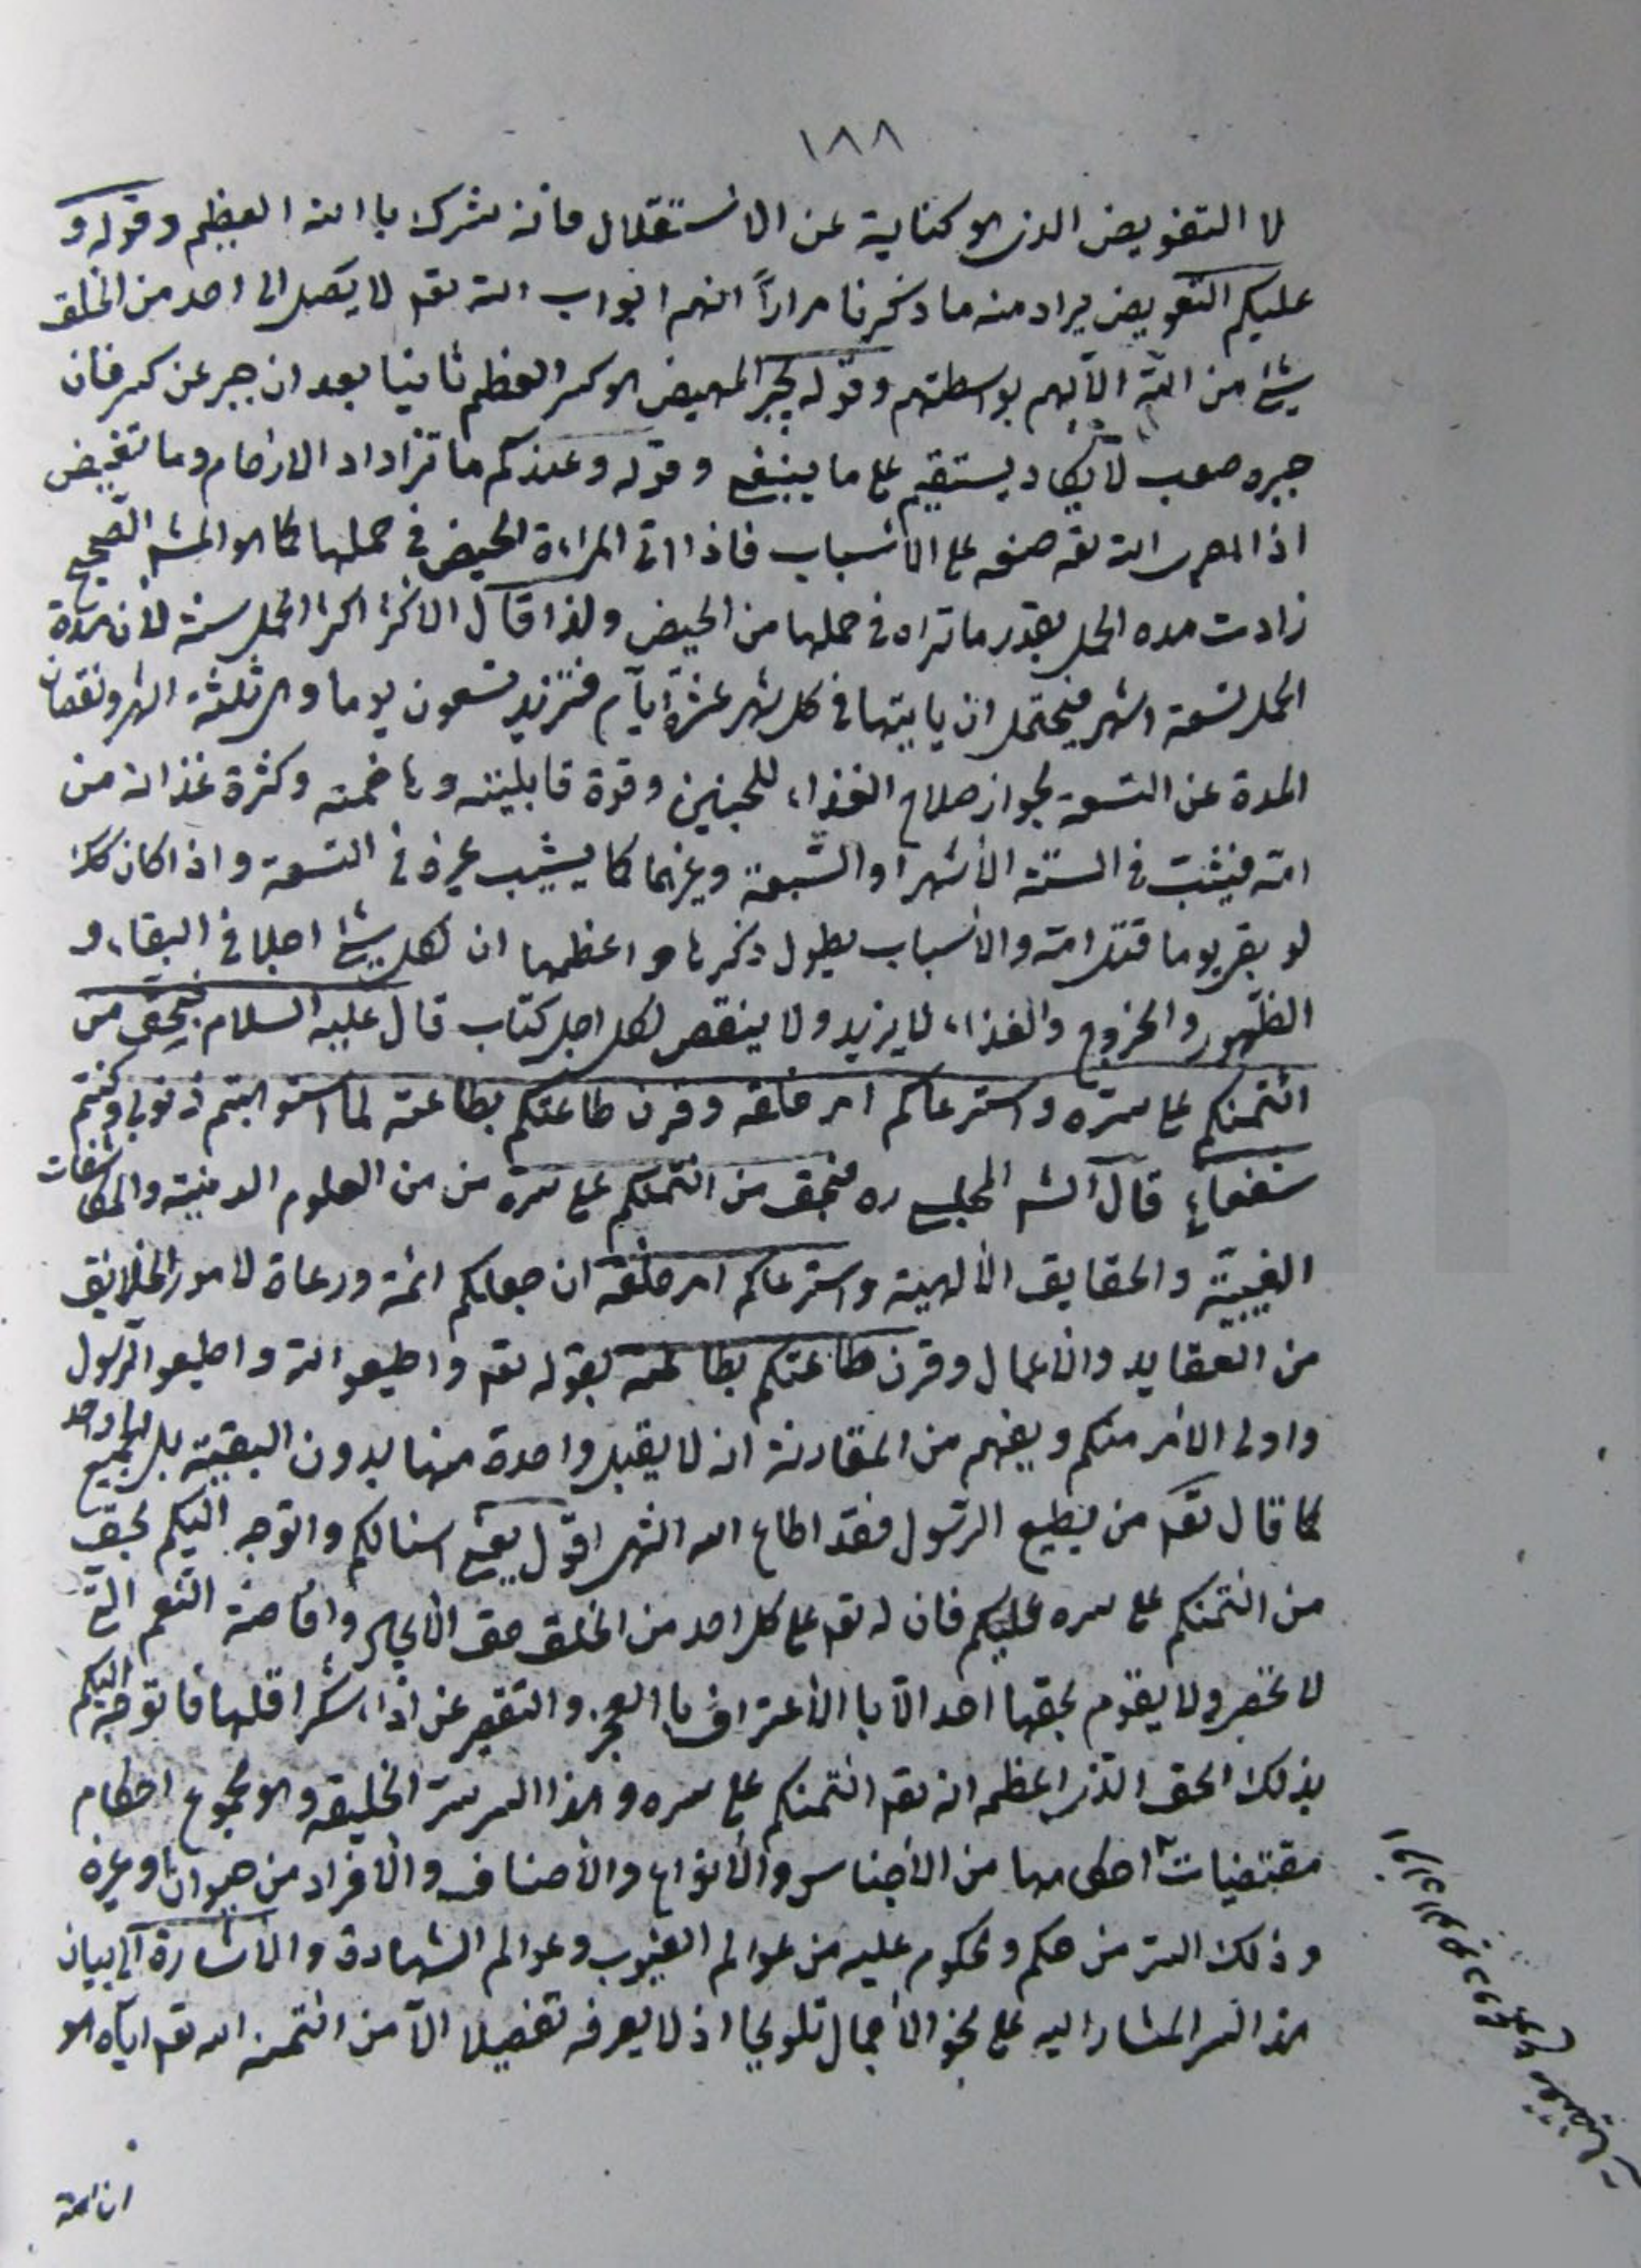 ١٨٨
لا التفويض الذى هو كناية عن الاستقلال فانه شرك باالله العظيم وقوله و
عليكم التعويض يراد منه ما ذكرنا مراراً انهم ابواب الله تعه لا يصل الى احد من الخلق
شئ من الله الا بهم بوسطتهم وقوله يجبر المهيض هو كسر العظم ثانيا بعد ان جبر عن كسر فان
جبره صعب لا يكاد يستقيم على ما ينبغى وقوله وعندكم ما تزداد الارحام وما تغيض
اذ اجرى الله تعه صنعه على الأسباب فاذا اتى المراءة الحيض فى حملها كما هو المشهـ الصحيح
زادت مده الحمل بقدر ما تراه فى حملها من الحيض ولذا قال الاكثر اكثر الحمل سنة لأن مدة
الحمل تسعة اشهر فيحتمل ان ياتيها فى كل شهر عشرة ايام فتزيد تسعون يوما وهى ثلثة اشهر ونقصان
المدة عن التسعة لجواز صلاح الغذاء للجنين وقوة قابليته وهاضمته وكثرة غذائه من
امه فينبت فى الستة الأشهر او السبعة وغيرهما كما يشيب غيره فى التسعة واذا كان كك
لو بقى يوما قتل امه والأسباب يطول ذكرها واعظمها ان لكل شئ اجلا فى البقاء و
الظهور والخروج والغذاء لا يزيد ولا ينقص لكل اجل كتاب قال عليه السلام فبحق من
ائتمنكم على سره واسترعاكم امر خلقه وقرن طاعتكم بطاعته لما استوهبتم ذنوبى وكنتم
شفعائى قال الشـ المجلسى ره فبحق من ائتمنكم على سره من من العلوم الدينية والمكاشفات
الغيبية والحقايق الألهية واسترعاكم امر خلقه ان جعلكم ائمة ورعاة لامور الخلايق
من العقايد والأعمال وقرن طاعتكم بطاعته بقوله تعه واطيعوا الله واطيعوا الرسول
واولى الأمر منكم ويفهم من المقارنة انه لا يقبل واحدة منها بدون البقية بل الجميع واحد
كما قال تعه من يطيع الرسول فقد اطاع الله انتهى اقول يعنى اسئالكم واتوجه اليكم بحق
من ائتمنكم على سره عليكم فان له تعه على كل احد من الخلق حق الأيجاد وافاضة النعم التى
لا تحصر ولا يقوم بحقها احد الا باالأعتراف باالعجز والتقصير عن اداء شكر اقلها فاتوجه اليكم
بذلك الحق الذى اعظمه انه تعه ائتمنكم على سره وهذا السر سر الخليقه وهو مجموع احكام
مقتضيات احكامها من الأجناس والأنواع والأصناف والأفراد من حيوان وغيره
وذلك السر من حكم ومحكوم عليه من عوالم الغيوب وعوالم الشهادة والأشارة الى بيان
هذا السر المشار اليه على نحو الأجمال تلويحا اذ لا يعرفه تفصيلا الا من ائتمنه الله تعه اياه هو
ان الله